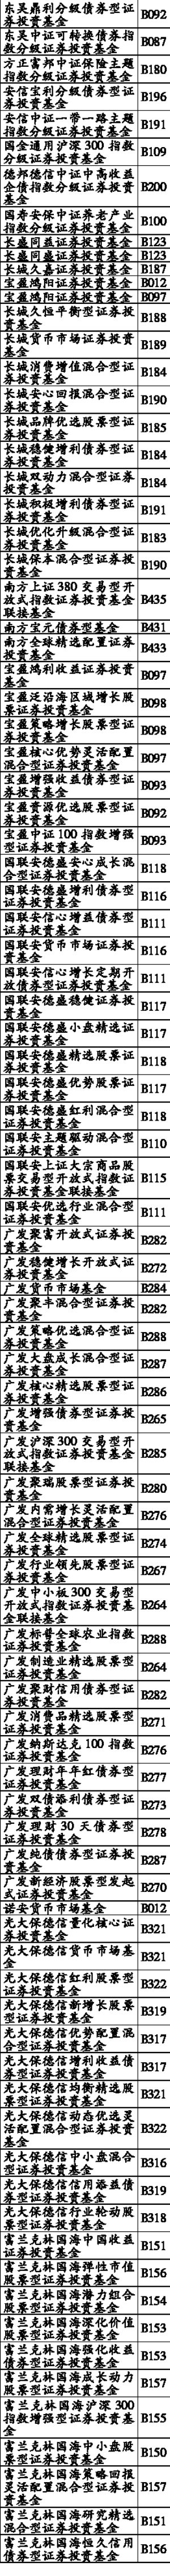 东吴鼎利分级债券型证
券投资基金 B092
东吴中证可转换债券指
数分级证券投资基金 B087
方正富邦中证保险主题
指数分级证券投资基金 B180
安信宝利分级债券型证
券投资基金 B196
安信中证一带一路主题
指数分级证券投资基金 B191
国金通用沪深300指数
分级证券投资基金 B109
德邦德信中证中高收益
企债指数分级证券投资
基金 B200
国寿安保中证养老产业
指数分级证券投资基金 B100
长盛同益证券投资基金 B123
长盛同盛证券投资基金 B123
长城久嘉证券投资基金 B187
宝盈鸿阳证券投资基金 B012
宝盈鸿阳证券投资基金 B097
长城久恒平衡型证券投
资基金 B188
长城货币市场证券投资
基金 B189
长城消费增值混合型证
券投资基金 B184
长城安心回报混合型证
券投资基金 B190
长城品牌优选股票型证
券投资基金 B185
长城稳健增利债券型证
券投资基金 B184
长城双动力混合型证券
投资基金 B184
长城积极增利债券型证
券投资基金 B191
长城优化升级混合型证
券投资基金 B183
长城保本混合型证券投
资基金 B190
南方上证380交易型开
放式指数证券投资基金
联接基金 B435
南方宝元债券型基金 B431
南方全球精选配置证券
投资基金 B433
宝盈鸿利收益证券投资
基金 B097
宝盈泛沿海区域增长股
票证券投资基金 B098
宝盈策略增长股票型证
券投资基金 B098
宝盈核心优势灵活配置
混合型证券投资基金 B097
宝盈增强收益债券型证
券投资基金 B093
宝盈资源优选股票型证
券投资基金 B092
宝盈中证100指数增强
型证券投资基金 B093
国联安德盛安心成长混
合型证券投资基金 B118
国联安德盛增利债券型
证券投资基金 B116
国联安信心增益债券型
证券投资基金 B111
国联安货币市场证券投
资基金 B116
国联安信心增长定期开
放债券型证券投资基金 B111
国联安德盛稳健证券投
资基金 B117
国联安德盛小盘精选证
券投资基金 B117
国联安德盛精选股票证
券投资基金 B118
国联安德盛优势股票证
券投资基金 B117
国联安德盛红利混合型
证券投资基金 B118
国联安主题驱动混合型
证券投资基金 B110
国联安上证大宗商品股
票交易型开放式指数证
券投资基金联接基金 B115
国联安优选行业混合型
证券投资基金 B111
广发聚富开放式证券投
资基金 B282
广发稳健增长开放式证
券投资基金 B272
广发货币市场基金 B284
广发聚丰混合型证券投
资基金 B282
广发策略优选混合型证
券投资基金 B288
广发大盘成长混合型证
券投资基金 B287
广发核心精选股票型证
券投资基金 B286
广发增强债券型证券投
资基金 B265
广发沪深300交易型开
放式指数证券投资基金
联接基金 B285
广发聚瑞股票型证券投
资基金 B280
广发内需增长灵活配置
混合型证券投资基金 B276
广发全球精选股票型证
券投资基金 B274
广发行业领先股票型证
券投资基金 B267
广发中小板300交易型
开放式指数证券投资基
金联接基金 B264
广发标普全球农业指数
证券投资基金 B288
广发制造业精选股票型
证券投资基金 B264
广发聚财信用债券型证
券投资基金 B282
广发消费品精选股票型
证券投资基金 B271
广发纳斯达克100指数
证券投资基金 B276
广发理财年年红债券型
证券投资基金 B277
广发双债添利债券型证
券投资基金 B273
广发理财30天债券型
证券投资基金 B278
广发纯债债券型证券投
资基金 B287
广发新经济股票型发起
式证券投资基金 B270
诺安货币市场基金 B012
光大保德信量化核心证
券投资基金 B321
光大保德信货币市场基
金 B321
光大保德信红利股票型
证券投资基金 B322
光大保德信新增长股票
型证券投资基金 B319
光大保德信优势配置混
合型证券投资基金 B317
光大保德信增利收益债
券型证券投资基金 B317
光大保德信均衡精选股
票型证券投资基金 B321
光大保德信动态优选灵
活配置混合型证券投资
基金 B322
光大保德信中小盘混合
型证券投资基金 B316
光大保德信信用添益债
券型证券投资基金 B319
光大保德信行业轮动股
票型证券投资基金 B318
富兰克林国海中国收益
证券投资基金 B151
富兰克林国海弹性市值
股票型证券投资基金 B156
富兰克林国海潜力组合
股票型证券投资基金 B154
富兰克林国海深化价值
股票型证券投资基金 B153
富兰克林国海强化收益
债券型证券投资基金 B153
富兰克林国海成长动力
股票型证券投资基金 B157
富兰克林国海沪深300
指数增强型证券投资基
金 B155
富兰克林国海中小盘股
票型证券投资基金 B150
富兰克林国海策略回报
灵活配置混合型证券投
资基金 B157
富兰克林国海研究精选
混合型证券投资基金 B151
富兰克林国海恒久信用
债券型证券投资基金 B156